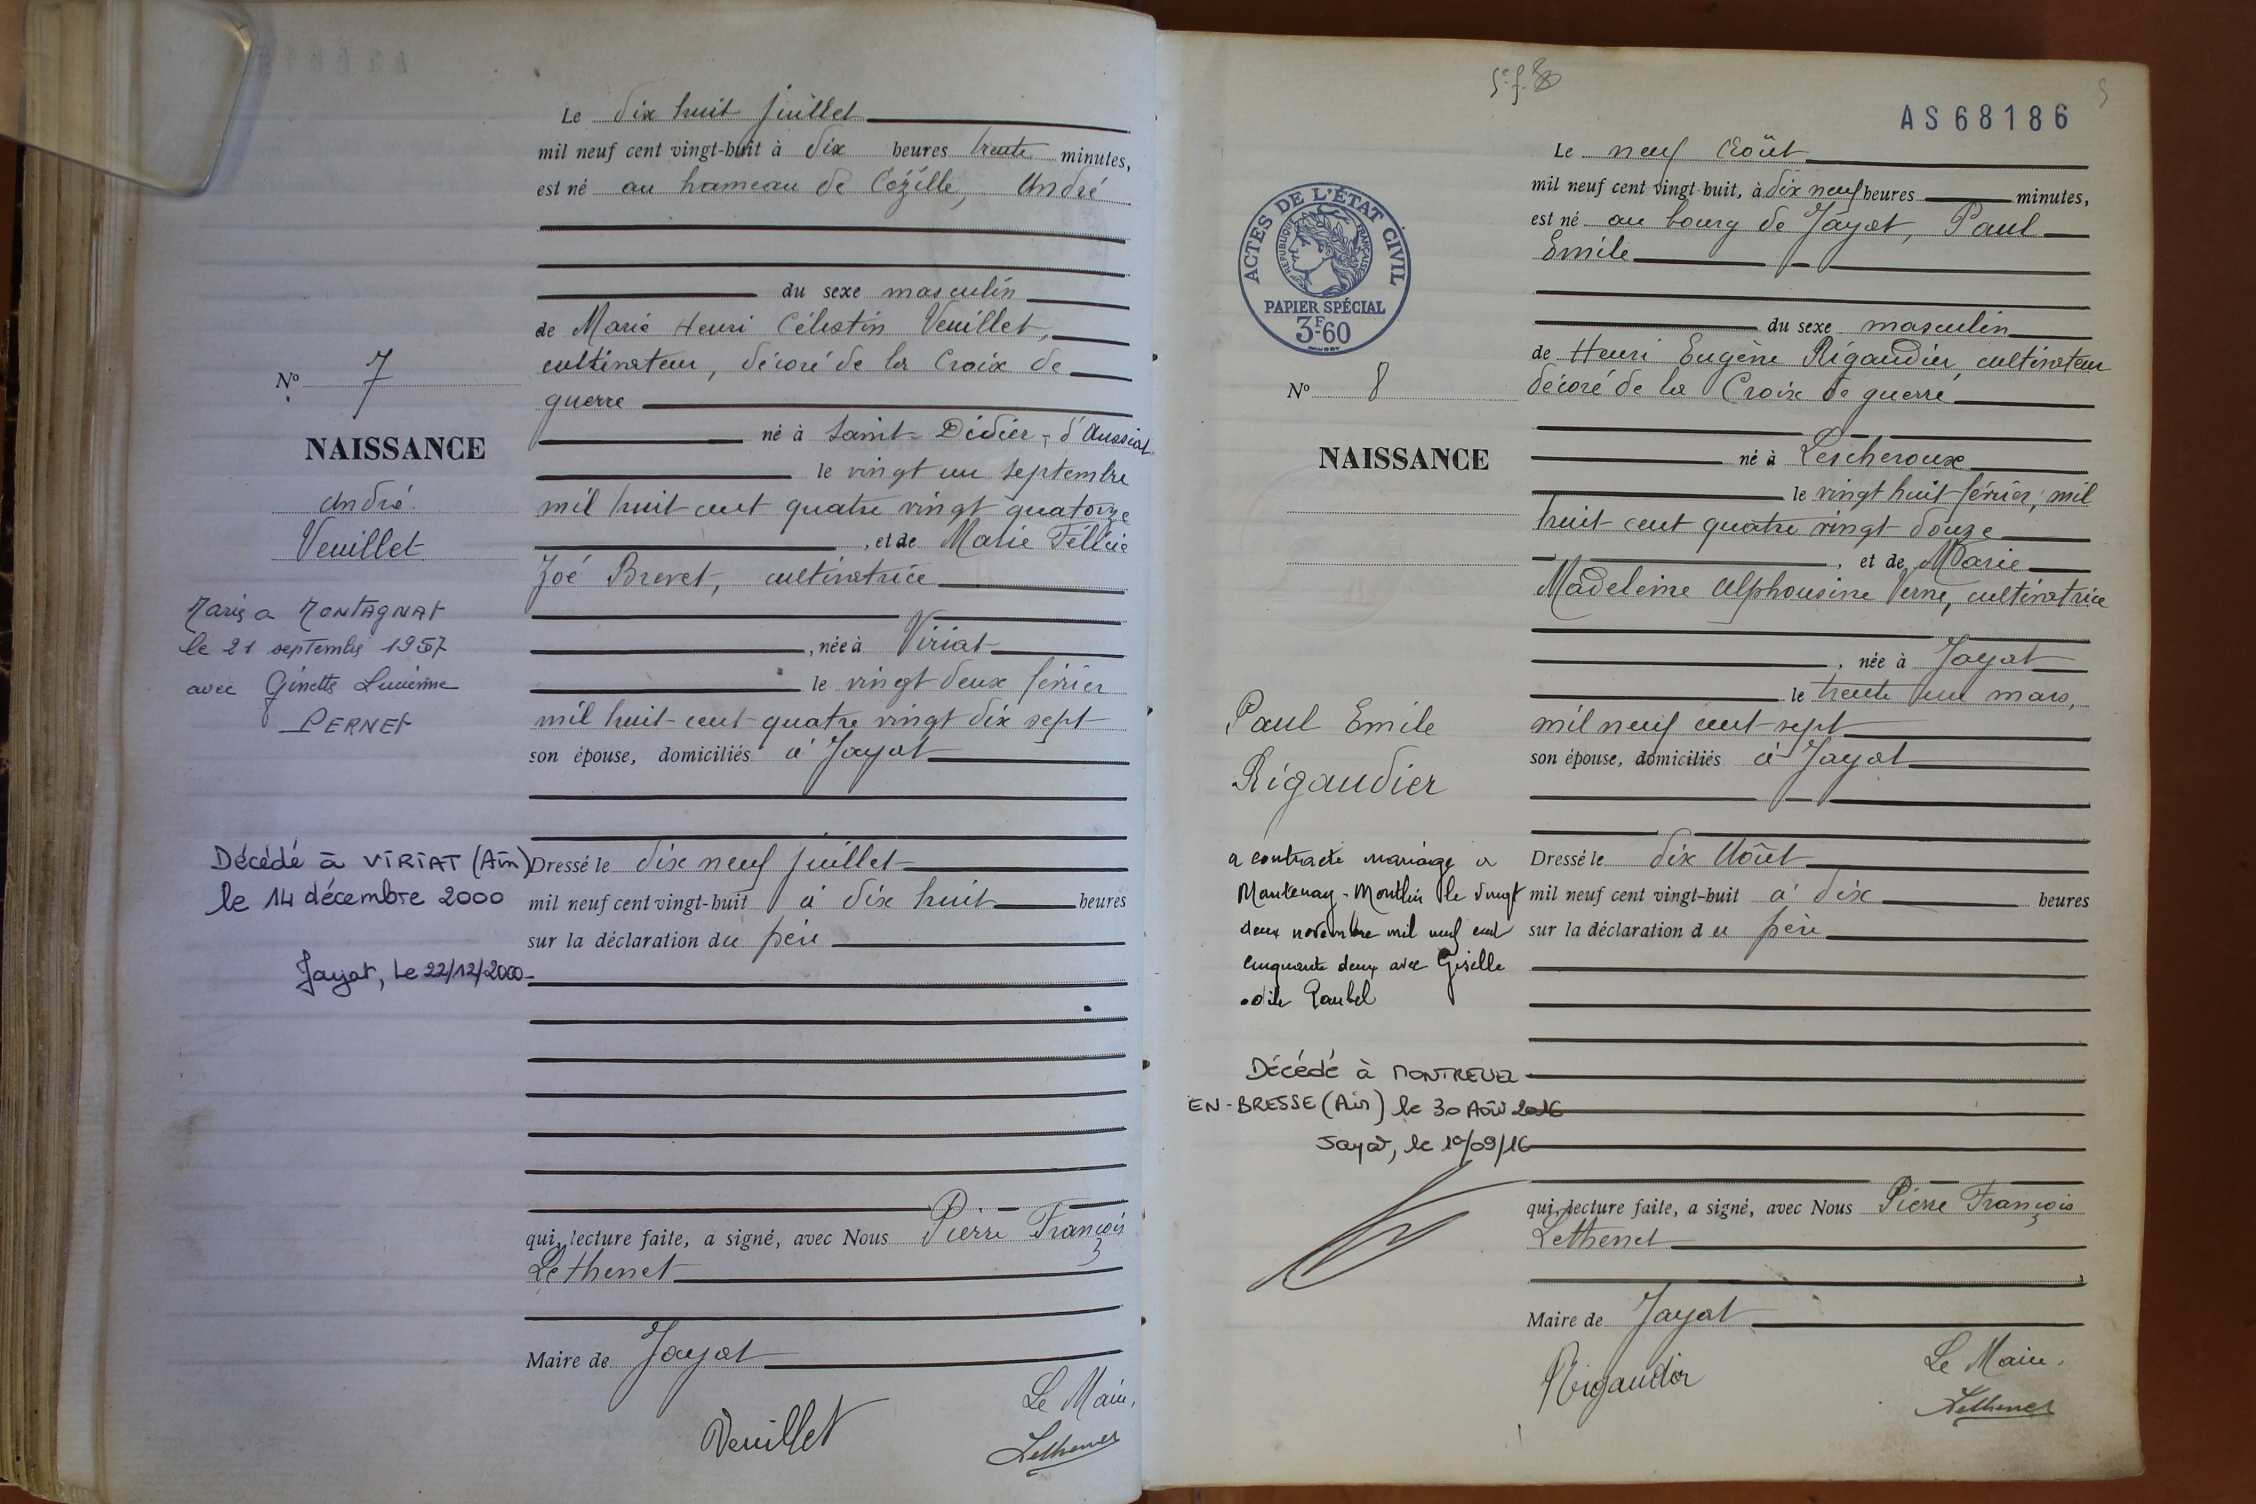 Le dix huit juillet
mil neuf cent vingt-huit à dix heures trente minutes,
est né au hameau de Cézille, André
du sexe masculin
de Marie Henri Célestin Veuillet,
cultivateur, décoré de la Croix de
guerre
né à Saint-Didier-d'Aussiat
le vingt un septembre
mil huit cent quatre vingt quatorze
, et de Marie Félicie
Zoé Brevet, cultivatrice
, née à Viriat
le vingt deux février
mil huit cent quatre vingt dix sept
son épouse, domiciliés à Jayat
Dressé le dix neuf juillet
mil neuf cent vingt-huit à dix huit heures
sur la déclaration du père
qui, lecture faite, a signé, avec Nous Pierre François
Lethenet
Maire de Jayat
Le Maire,
Veuillet
Lethenet
No 7
NAISSANCE
André
Veuillet
Marié a MONTAGNAT
le 21 septembre 1957
avec Ginette Lucienne
PERNET
Décédé à VIRIAT (Ain)
le 14 décembre 2000
Jayat, le 22/12/2000
5
AS68186
Le neuf Août
mil neuf cent vingt-huit, à dix neuf heures minutes,
est né au bourg de Jayat, Paul
Emile
du sexe masculin
de Henri Eugène Rigaudier, cultivateur
décoré de la Croix de guerre
né à Lescheroux
le vingt huit février, mil
huit cent quatre vingt douze
, et de Marie
Madeleine Alphonsine Verne, cultivatrice
, née à Jayat
le trente un mars,
mil neuf cent sept
son épouse, domiciliés à Jayat
Dressé le dix Août
mil neuf cent vingt-huit à dix heures
sur la déclaration du père
qui, lecture faite, a signé, avec Nous Pierre François
Lethenet
Maire de Jayat
Le Maire,
Rigaudier
Lethenet
ACTES DE L'ÉTAT CIVIL
RÉPUBLIQUE FRANÇAISE
PAPIER SPÉCIAL
3F60
No 8
NAISSANCE
Paul Emile
Rigaudier
a contracté mariage à
Mantenay-Montlin le vingt
deux novembre mil neuf cent
cinquante deux avec Giselle
Odile
Décédé à MONTREVEL
EN-BRESSE (Ain) le 30 Août 2016
Jayat, le 1e/09/16